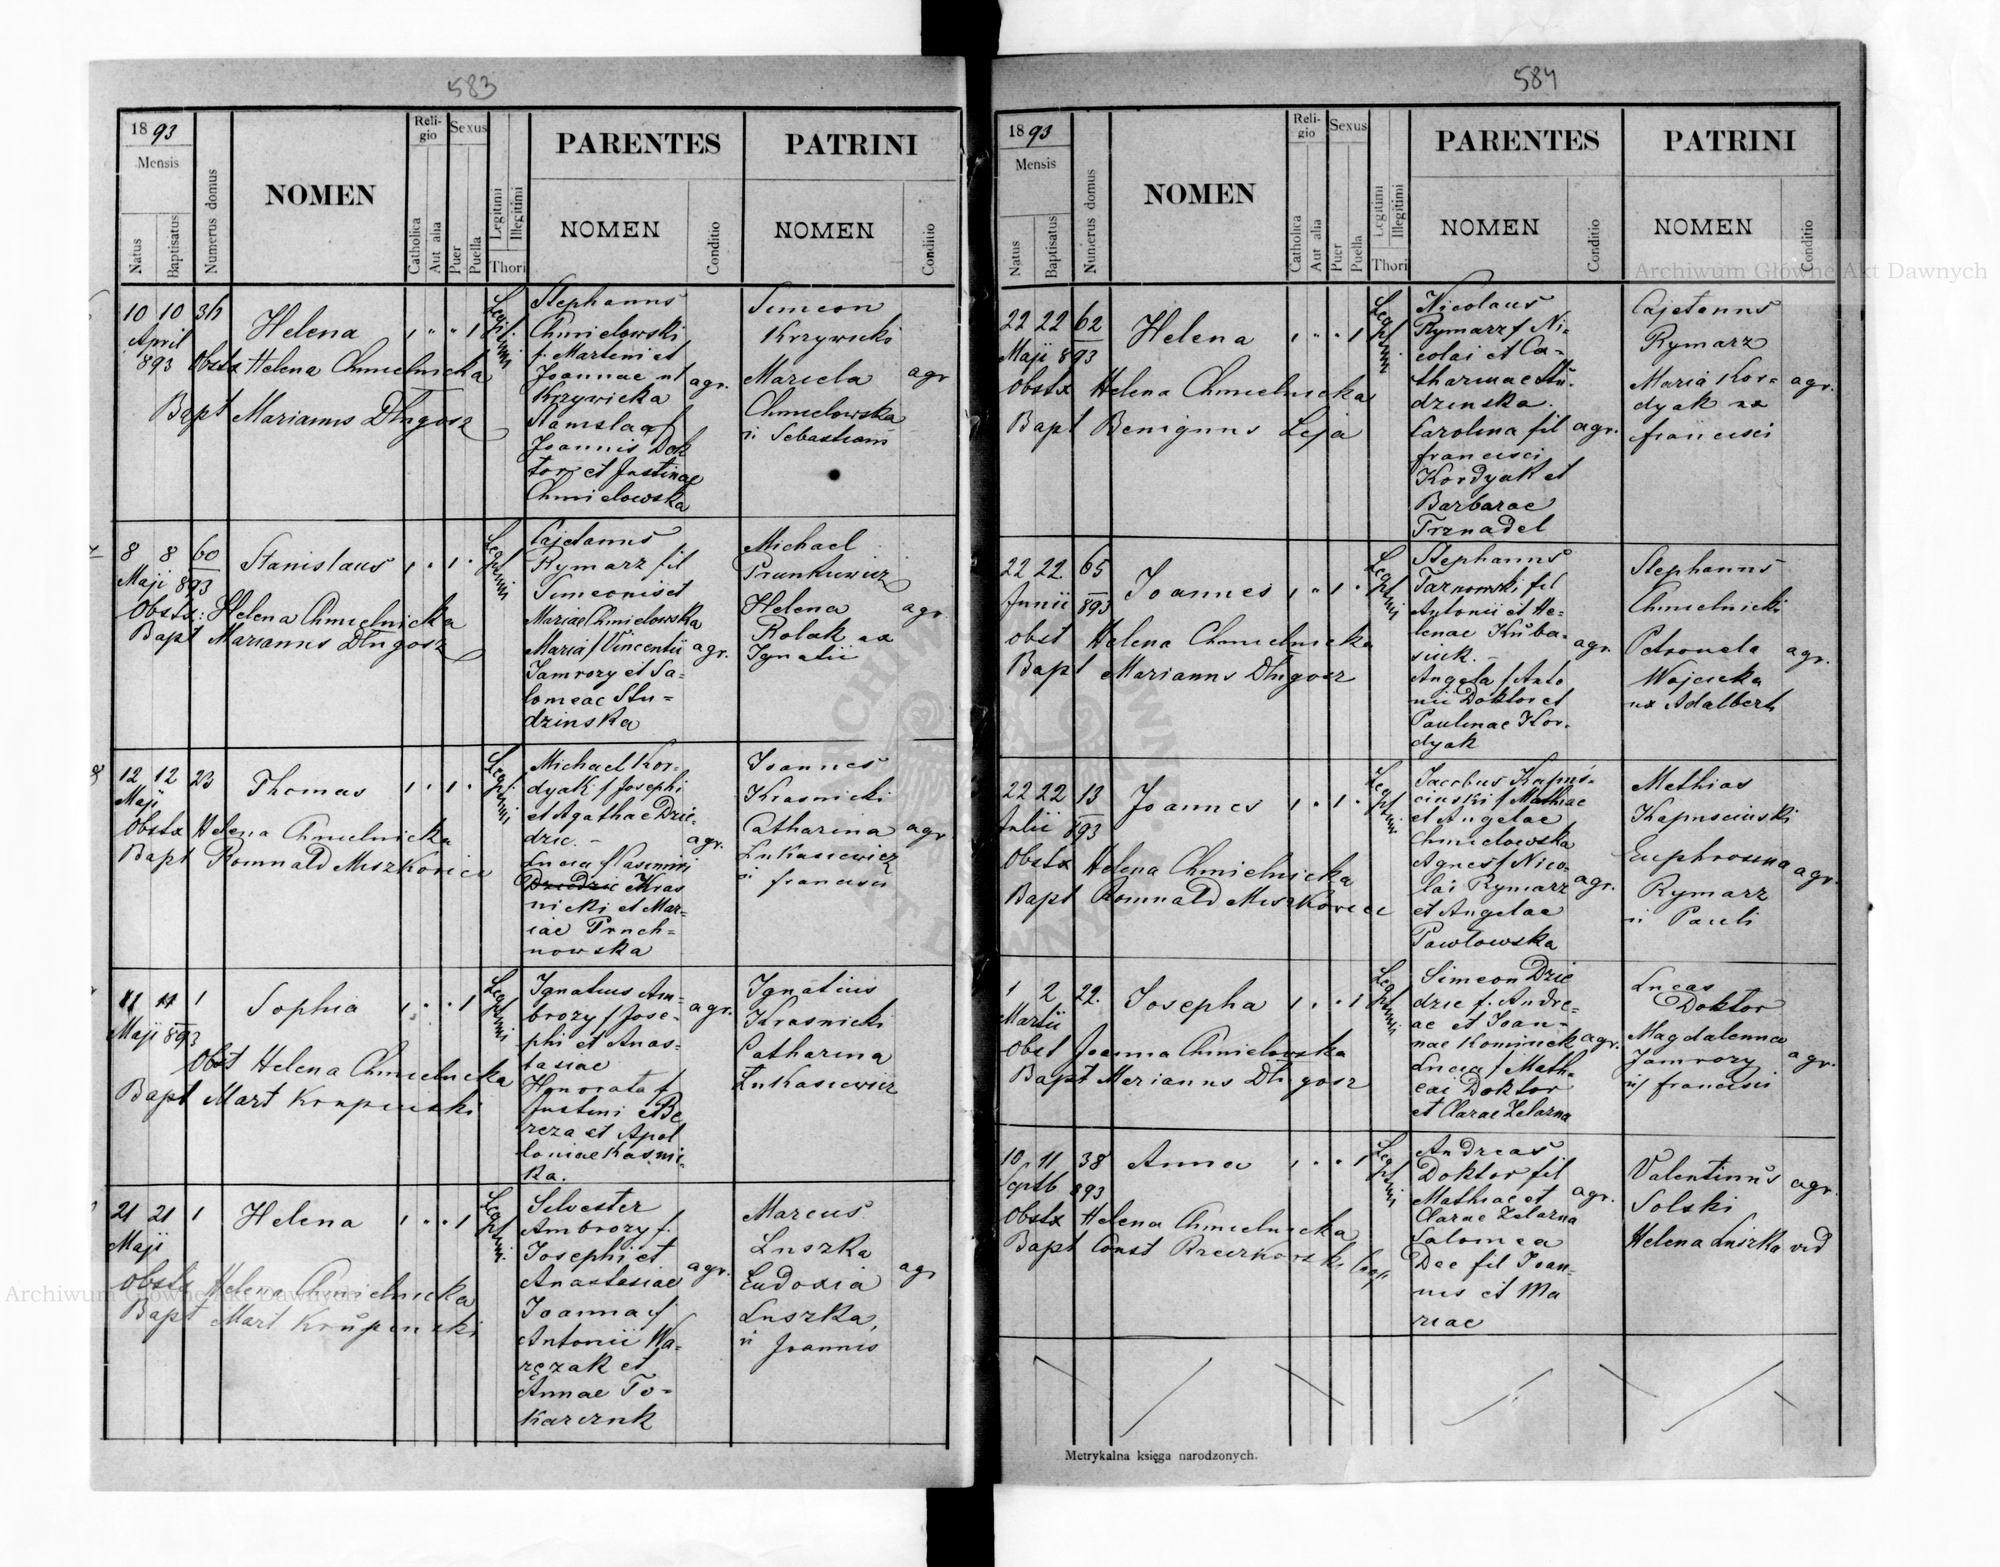 583
1893
Mensis
Natus
Baptisatus
Numerus domus
NOMEN
Religio
Catholica
Aut alia
Sexus
Puer
Puella
Legitimi
Illegitimi
Thori
PARENTES
NOMEN
Conditio
PATRINI
NOMEN
Conditio
10 10 36
April
893
Helena
Obstx Helena Chmielnicka
Bapt Marianus Długosz
Legitimi
Stephanus
Chmielowski
f. Martini et
Joannae nt
Krzywicka
agr.
Stanisla f
Joannis Dok
tor et Justinae
Chmielowska
Simeon
Krzywicki
Mariela
Chmielowska
Sebastiani
agr
8 8 60
Maji 893
Stanislaus
Obstx: Helena Chmielnicka
Bapt Marianus Długosz
Legitimi
Cajetanus
Rymarz fil
Simeonis et
Mariae Chmielowska
Maria f Vincentii
agr.
Jamrozy et Sa-
lomeae Stu-
dzinska
Michael
Prunkiewicz
Helena
Rolak ux
Ignatii
agr.
12 12 23
Maji
Thomas
Obstx Helena Chmielnicka
Bapt Romuald Miszkowicz
Legitimi
Michael Kor-
dyak f Josephi
et Agathae Dzie-
dzic. -
agr.
Lucia f Casimiri
Dziedzic Kras
nicki et Mar-
iae Pruch-
nowska
Joannes
Krasnicki
Catharina
Łukasiewicz
francisci
agr.
11 11 1
Maji 893
Sophia
Obst Helena Chmielnicka
Bapt Mart Krupinski
Legitimi
Ignatius Am-
brozy f Jose-
phi et Anas-
tasiae
agr.
Honorata f
Justini et Be
reza et Apol
loniae Kasnic-
ka.
Ignatius
Krasnicki
Catharina
Łukasiewicz
21 21 1
Maji
Helena
Obstx Helena Chmielnicka
Bapt Mart Krupinski
Legitimi
Silvester
Ambrozy f.
Josephi et
Anastasiae
agr.
Joanna f
Antonii Wa-
ręzak et
Annae To-
karczuk
Marcus
Luszka
Eudoxia
Luszka,
Joannis
agr
584
1893
Mensis
Natus
Baptisatus
Numerus domus
NOMEN
Religio
Catholica
Aut alia
Sexus
Puer
Puella
Legitimi
Illegitimi
Thori
PARENTES
NOMEN
Conditio
PATRINI
NOMEN
Conditio
22 22 62
Maji 893
Helena
Obstx Helena Chmielnicka
Bapt Benignus Leja
Legitimi
Nicolaus
Rymarz f Ni-
colai et Ca-
tharinae Stu-
dzinska.
Carolina fil
agr.
francisci
Kordyak et
Barbarae
Trznadel
Cajetanus
Rymarz
Maria Kor-
dyak ux
francisci
agr.
22 22 65
Junii 893
Joannes
Obst Helena Chmielnicka
Bapt Marianus Długosz
Legitimi
Stephanus
Tarnowski fil
Antonii et He-
lenae Kuba-
siuk. -
agr.
Angela f Anto
nii Doktor et
Paulinae Kor-
dyak
Stephanus
Chmielnicki
Petronela
Wojcicka
ux Adalberti
agr.
22 22 13
Julii 893
Joannes
Obstx Helena Chmielnicka
Bapt Romuald Miszkowicz
Legitimi
Jacobus Kapuś-
cinski f Mathiae
et Angelae
Chmielowska
Agnes f Nico-
lai Rymarz
agr.
et Angelae
Pawlowska
Mathias
Kapuscinski
Euphrosina
Rymarz
Pauli
agr.
1 2 22.
Martii
Josepha
Obst Joanna Chmielowska
Bapt Marianus Długosz
Legitimi
Simeon Dzie
dzic f. Andre-
ae et Joan-
nae Kominek
agr.
Lucia f Math-
eai Doktor
et Clarae Zelazna
Lucas
Doktor
Magdalenna
Jamrozy
francisci
agr.
10 11 38
Septb 893
Anna
Obstx Helena Chmielnicka
Bapt Const
Legitimi
Andreas
Doktor fil
Mathiae et
Clarae Zelazna
agr.
Salomea
Dec fil Joan-
nis et Ma
riae
Valentinus
Solski
agr.
Helena Luszka vid
Metrykalna księga narodzonych.
Archiwum Główne Akt Dawnych
Archiwum Główne Akt Dawnych